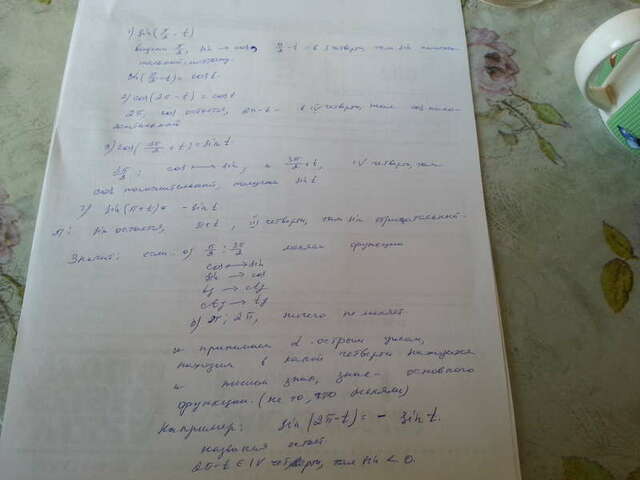 1) sin(π/2 - t)
видим π/2, sin → cos, π/2 - t - в I четверти, там sin положи-
тельный, поэтому
sin(π/2 - t) = cos t
2) cos(2π - t) = cos t
2π, cos остается, 2π - t - в IV четверти, там cos поло-
жительный
3) cos(3π/2 + t) = sin t
3π/2: cos → sin, а 3π/2 + t, IV четверть, там
cos положительный, получим sin t
4) sin(π + t) = - sin t
π: sin остается, π + t, III четверть, там sin отрицательный.
Значит: если: а) π/2; 3π/2 меняем функции
cos → sin
sin → cos
tg → ctg
ctg → tg
б) π; 2π, ничего не меняем
и принимая α острым углом,
находим в какой четверти находимся
и пишем знак, знак - основного
функции. (не то, что меняли)
Например: sin(2π - t) = - sin t.
название
2π - t ∈ IV четверти, там sin < 0.